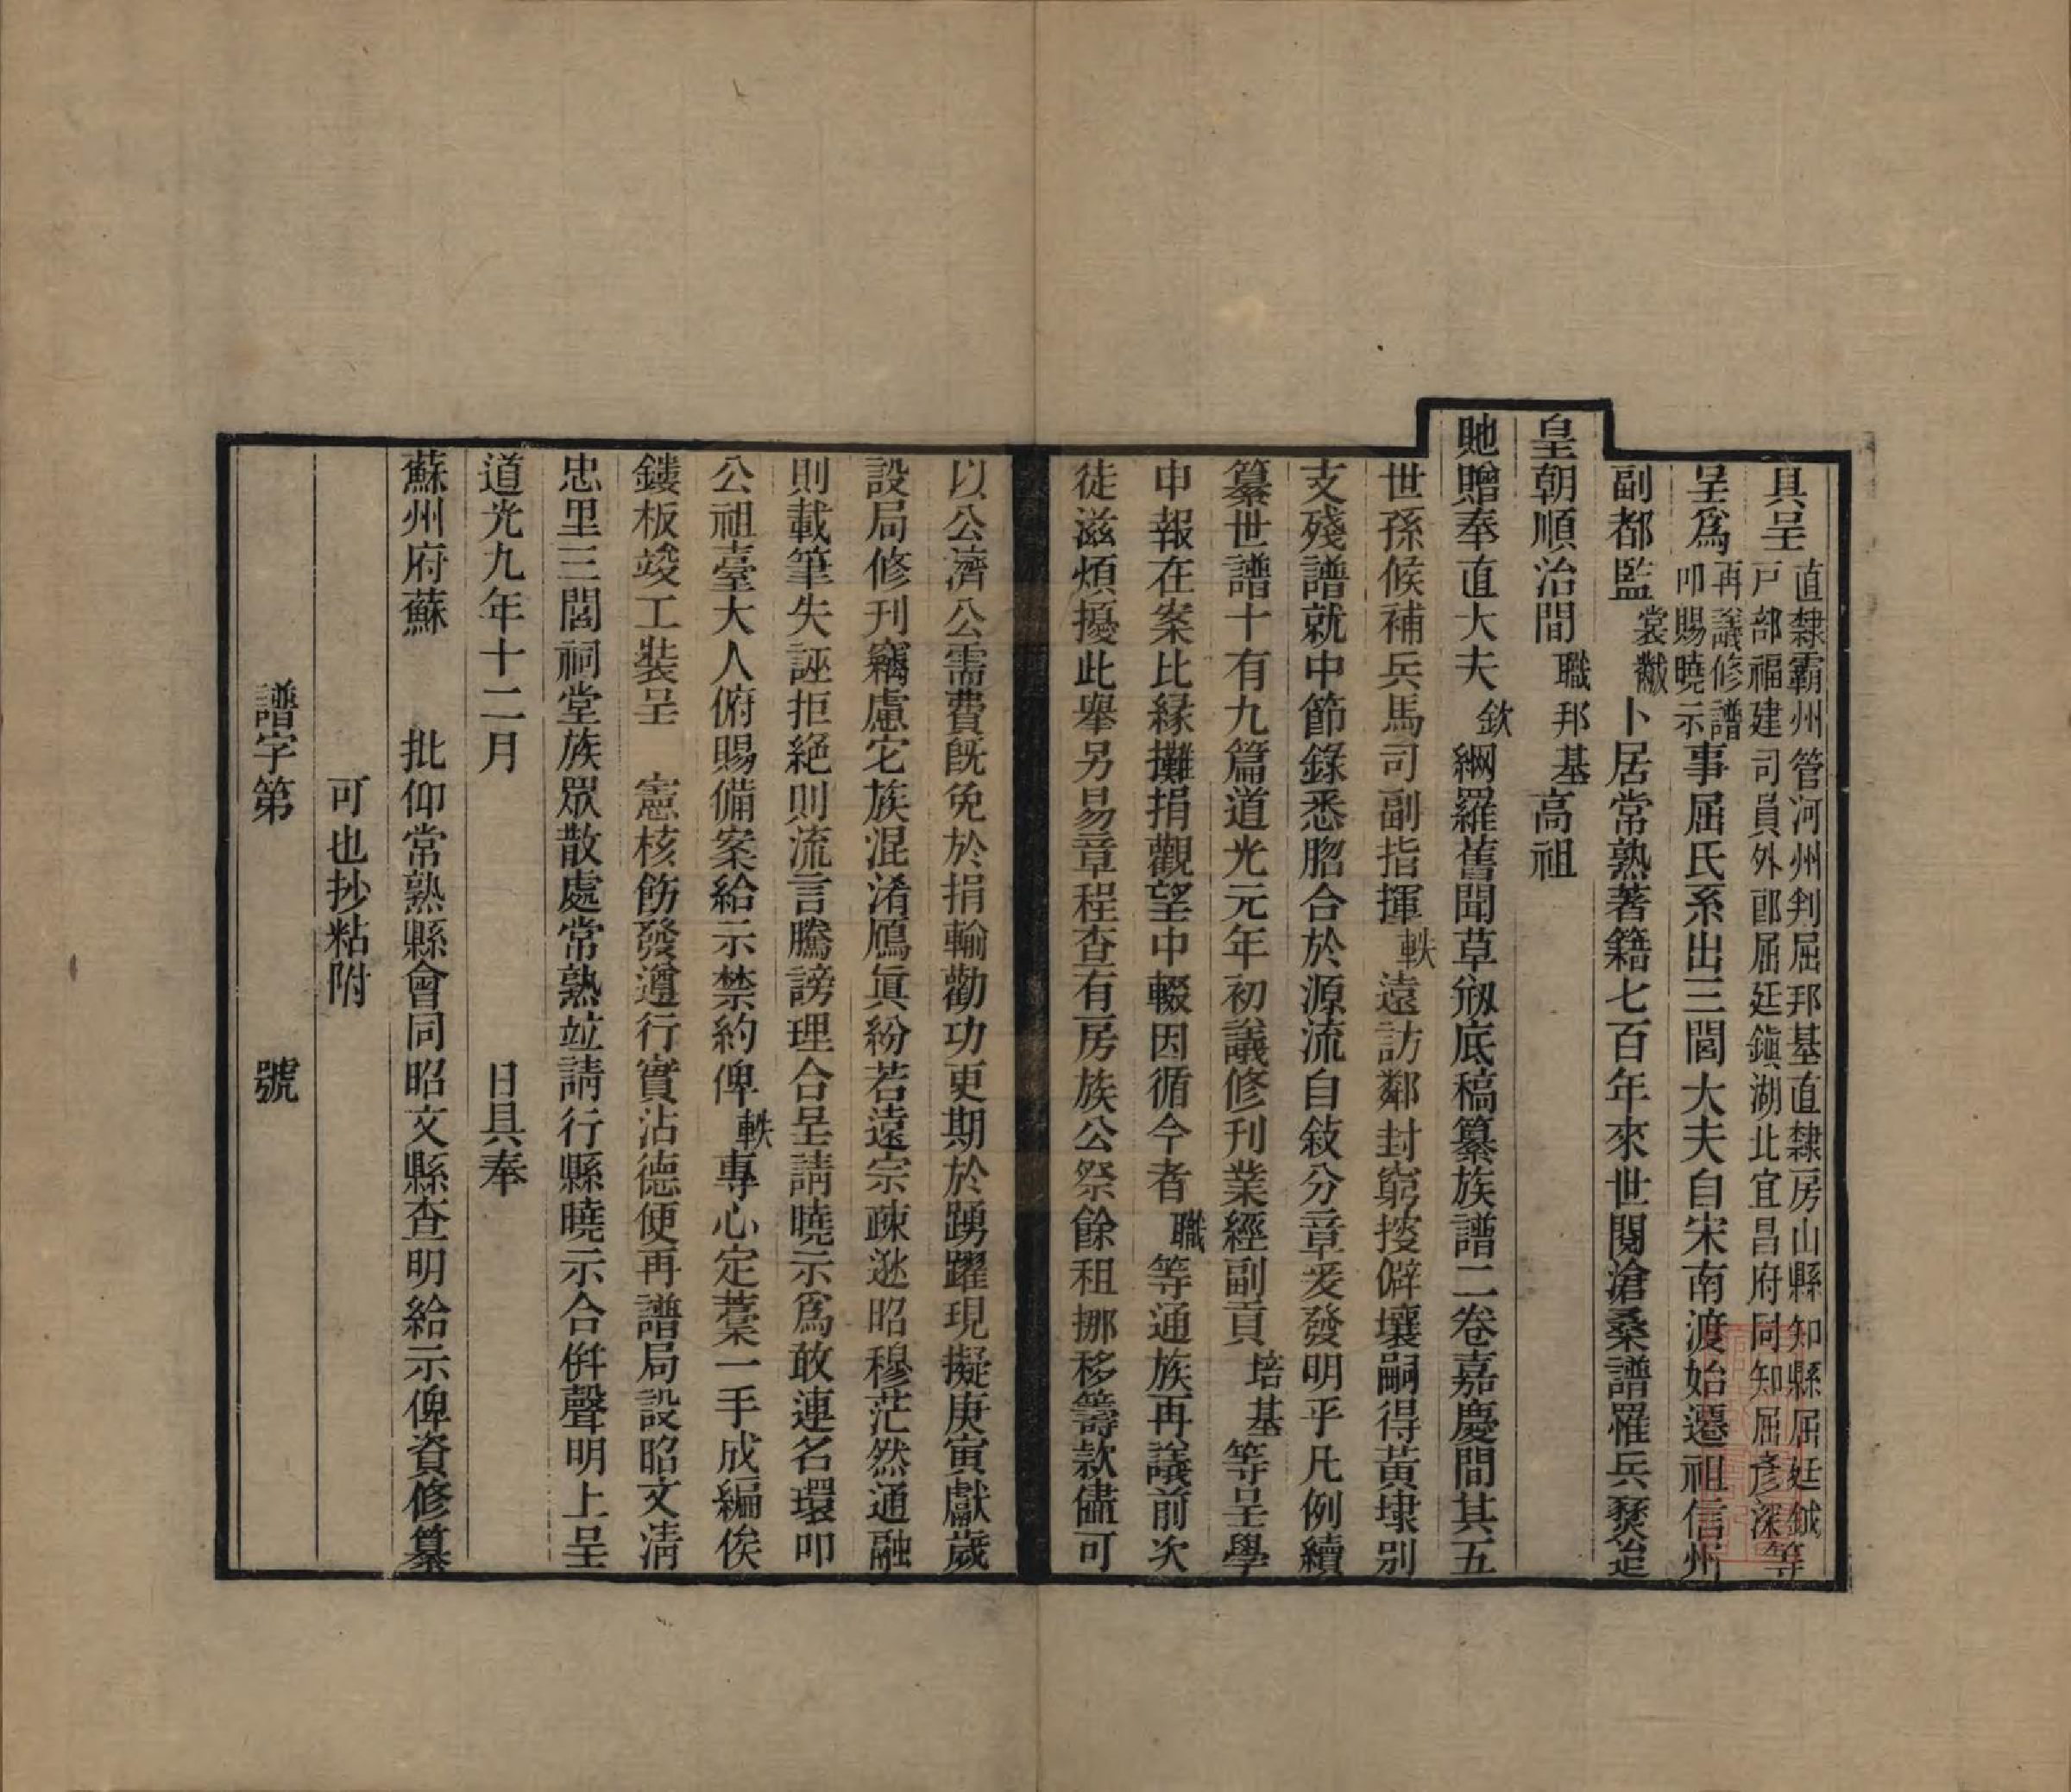 具呈直隸霸州管河州判屈邦基直隸房山縣知縣屈廷鉞等戸部福建司員外郎屈廷鎮湖北宜昌府同知屈彥深等
呈爲再議修譜叩賜曉示事屈氏系出三閭大夫自宋南渡始遷祖信州
副都監裳黻卜居常熟著籍七百年來世閱滄桑譜罹兵燹迨
皇朝順治間職邦基高祖
貤贈奉直大夫欽綱羅舊聞草剏底稿纂族譜二卷嘉慶間其五
世孫候補兵馬司副指揮軼遠訪鄰封窮搜僻壤嗣得黃埭別
支殘譜就中節錄悉脗合於源流自敍分章爰發明乎凡例續
纂世譜十有九篇道光元年初議修刊業經副貢培基等呈學
申報在案比緣攤捐觀望中輟因循今者職等通族再議前次
徒滋煩擾此舉另易章程查有房族公祭餘租挪移籌款儘可
以公濟公需費旣免於捐輸勸功更期於踴躍現擬庚寅獻歲
設局修刊竊慮它族混淆鴈眞紛若遠宗疎逖昭穆茫然通融
則載筆失誣拒絶則流言騰謗理合呈請曉示爲敢連名環叩
公祖臺大人俯賜備案給示禁約俾軼專心定藁一手成編俟
鏤板竣工裝呈　憲核飭發遵行實沾德便再譜局設昭文淸
忠里三閭祠堂族眾散處常熟竝請行縣曉示合倂聲明上呈
道光九年十二月　日具奉
蘇州府蘇　批仰常熟縣會同昭文縣查明給示俾資修纂
可也抄粘附
譜字第　號